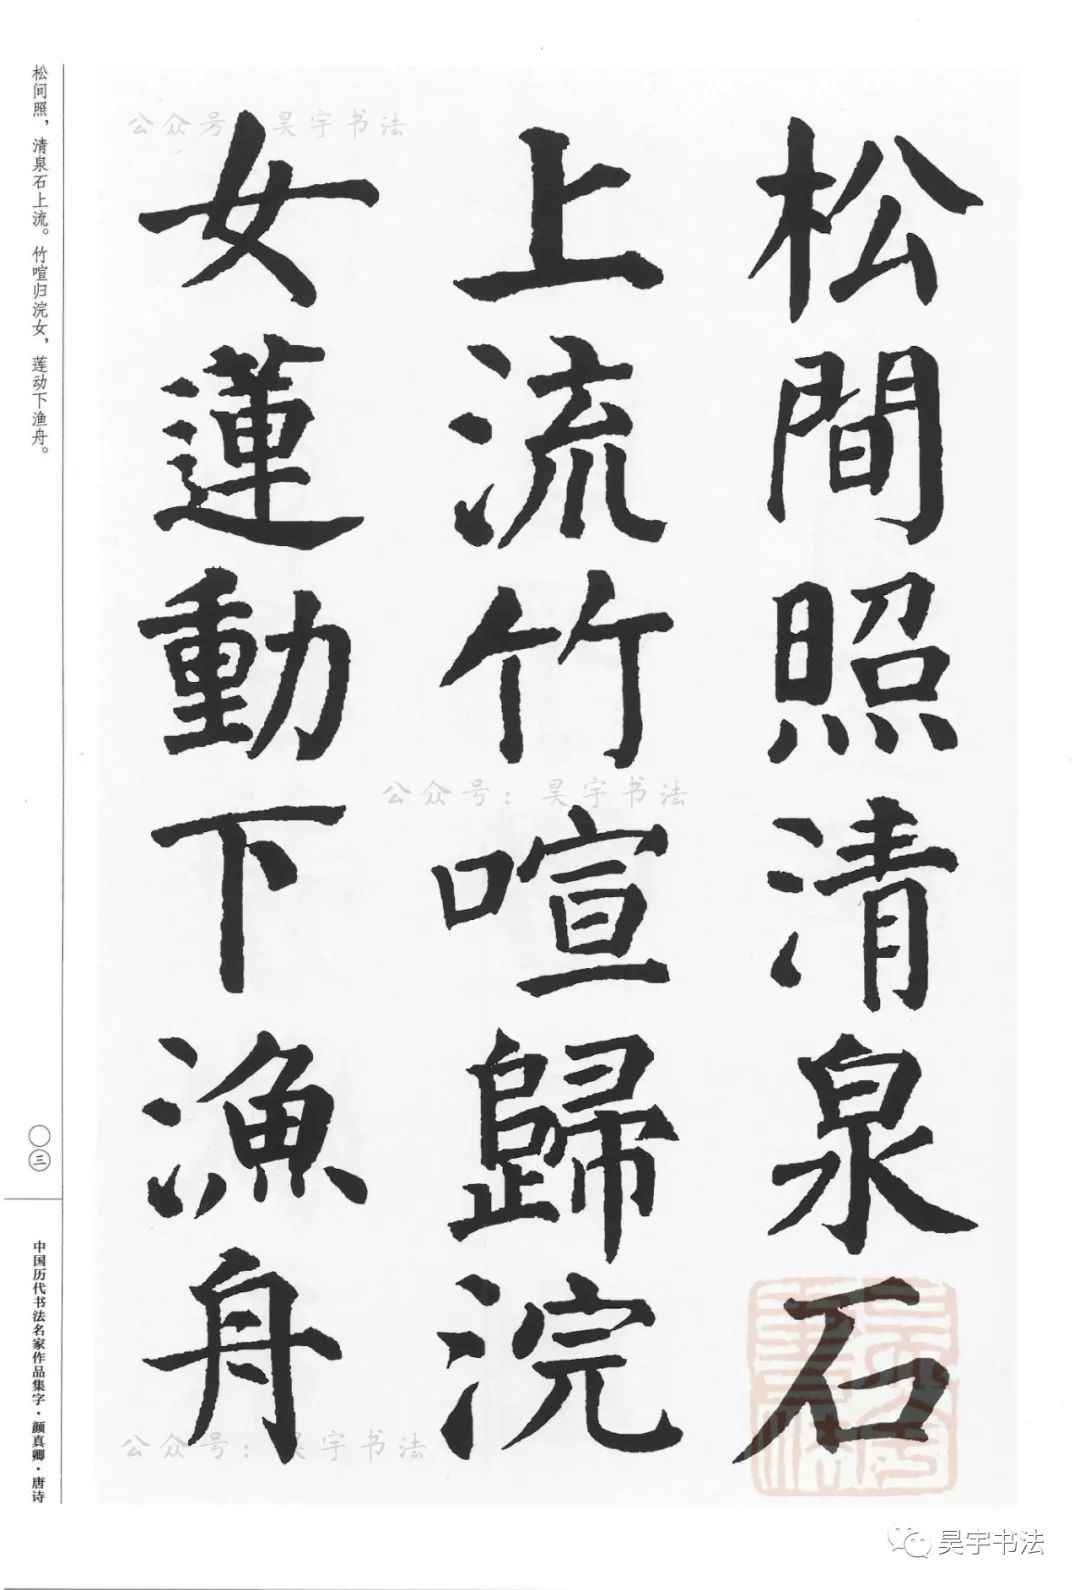 松間照清泉石
上流竹喧歸浣
女蓮動下漁舟
松间照，清泉石上流。竹喧归浣女，莲动下渔舟。
〇三
中国历代书法名家作品集字·颜真卿·唐诗
公众号：昊宇书法
公众号：昊宇书法
公众号：昊宇书法
昊宇书法